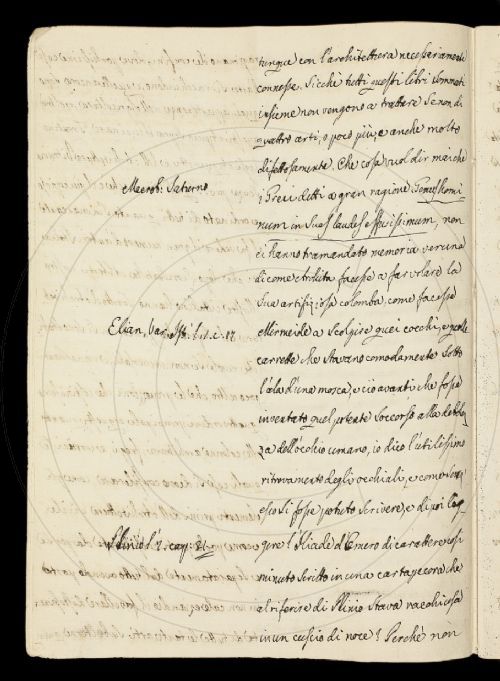 tunque con l'architettura necessariamente
connesse. Sicchè tutti questi libri sommati
insieme non vengono a trattare se non di
quattro arti, o poco più, e anche molto
difettosamente. Che cosa vuol dir mai che
Macrob: Saturno
i Greci detti a gran ragione
num in suas laudes effusissimum, non
ci hanno tramandato memoria veruna
di come Archita facesse a far volare la
sua artifiziosa colomba, come facesse
Elian, Var. Ist. l. 1. c. 17
Mirmeide a scolpire quei cocchi, e quelle
carrette che stavano comodamente sotto
l'ala d'una mosca, e ciò avanti che fosse
inventato quel potente soccorso alla debbolez
za dell'occhio umano, io dico l'utilissimo
ritrovamento degli occhiali, e come
esso si fosse potuto scrivere, e di poi leg
Plinio l. 7. cap: 21.
gere l'Iliade d'Omero di carattere così
minuto scritto in una cartapecora che
al riferire di Plinio stava racchiusa
in un guscio di noce? Perchè non